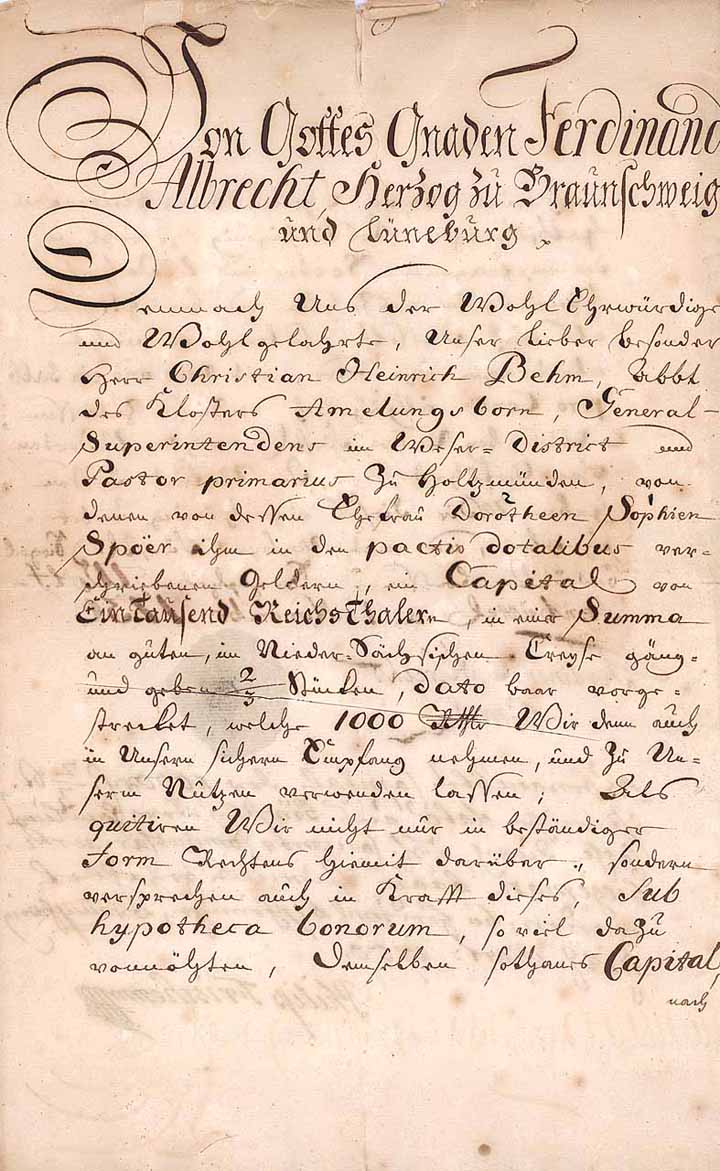 Von Gottes Gnaden Ferdinand
Albrecht, Herzog zu Braunschweig
und Lüneburg.
Demnach Uns der WohlEhrwürdige
und Wohlgelahrte, Unser lieber besonder
Herr Christian Heinrich Behm, Abbt
des Klosters Amelungsborn, General-
Superintendens im Weser-District und
Pastor primarius zu Holtzmünden, von
denen von dessen Ehefrau Dorotheen Sophien
Spöer ihm in den pactis dotalibus ver-
schriebenen Geldern, ein Capital von
EinTausend ReichsThalern, in einer Summa
an guten, im Nieder-Sächsischen Creyse gäng-
und geben 2/3 Stücken, dato baar vorge-
strecket, welche 1000 Rthlr Wir denn auch
in Unsern sichern Empfang nehmen, und zu Un-
serm Nutzen verwenden lassen; Als
quitiren Wir nicht nur in beständiger
Form Rechtens hiemit darüber, sondern
versprechen auch in Krafft dieses, sub
hypotheca bonorum, so viel dazu
vonnöhten, demselben sothanes Capital,
nach